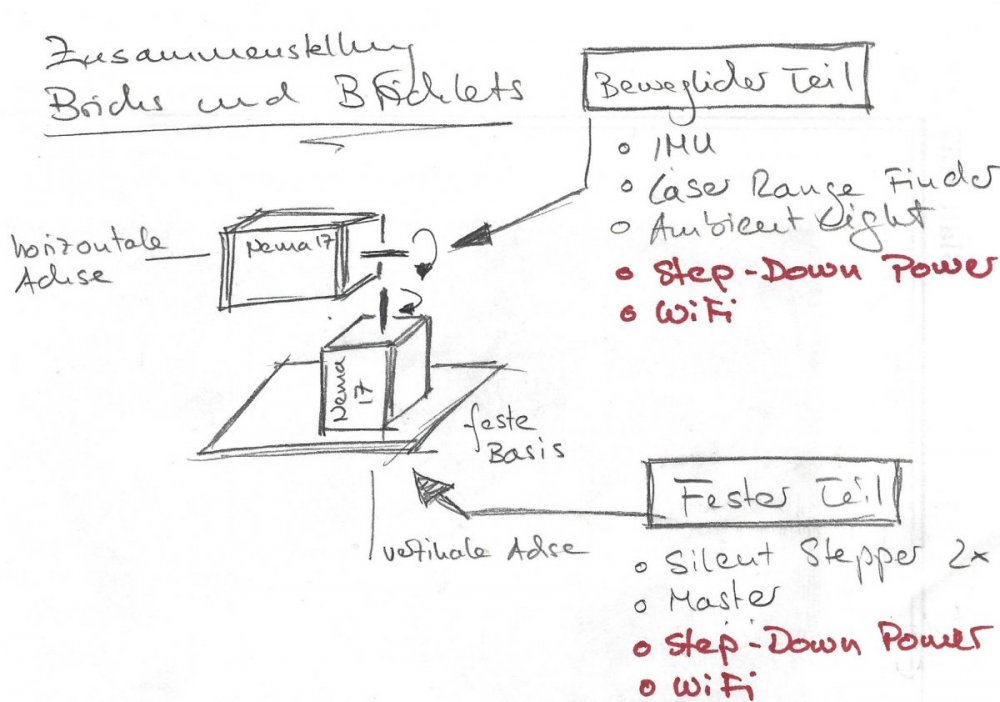 Zusammenstellung
Bricks und Bricklets
Beweglicher Teil
o IMU
o Laser Range Finder
o Ambient Light
o Step-Down Power
o WiFi
horizontale
Achse
Nema 17
Nema
17
feste
Basis
vertikale Achse
Fester Teil
o Silent Stepper 2x
o Master
o Step-Down Power
o WiFi